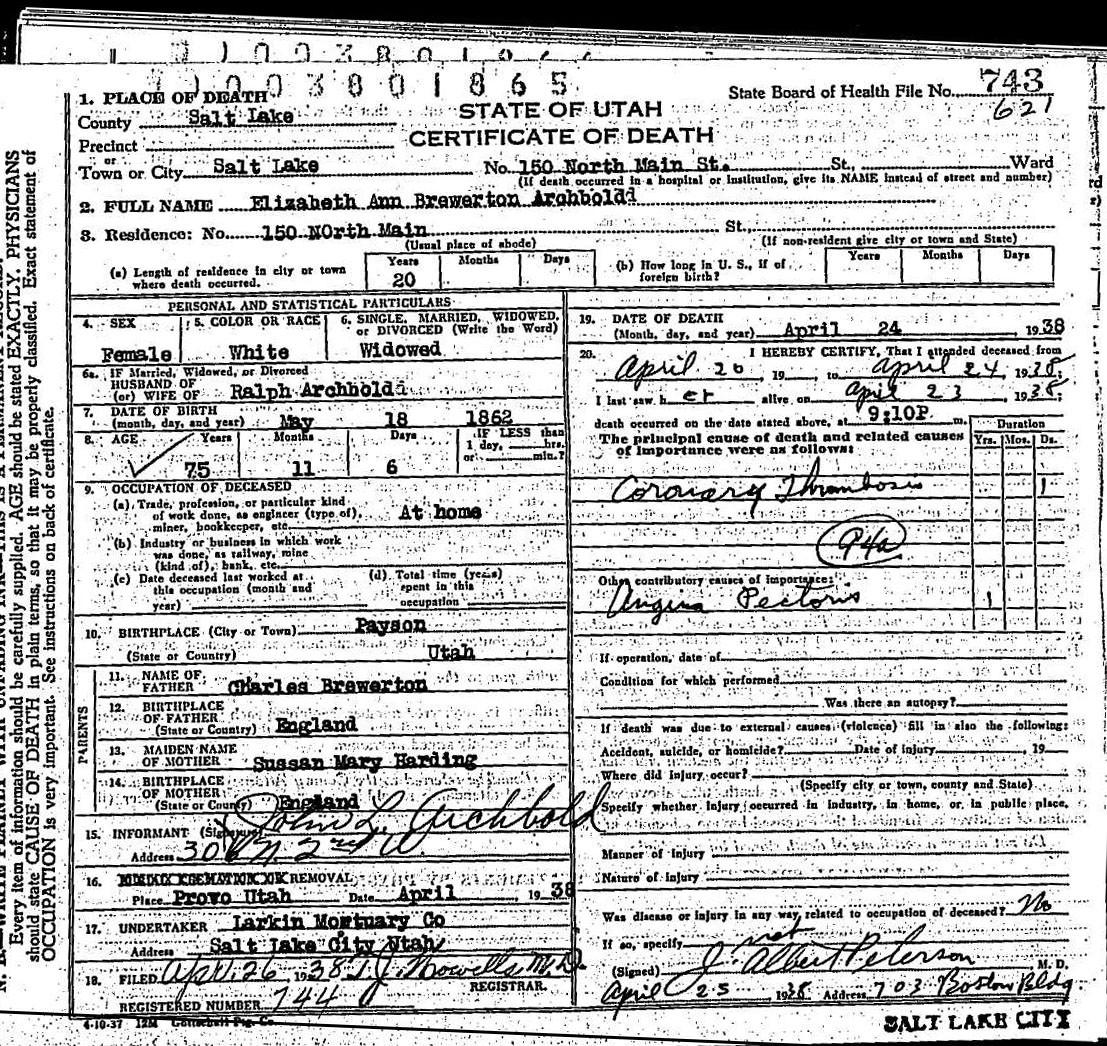 1003801865
1. PLACE OF DEATH
State Board of Health File No. 743
621
County Salt Lake
STATE OF UTAH
Precinct
CERTIFICATE OF DEATH
or
Town or City Salt Lake No. 150 North Main St. St., Ward
(If death occurred in a hospital or institution, give its NAME instead of street and number)
2. FULL NAME Elizabeth Ann Brewerton Archboldd
3. Residence: No. 150 NOrth Main St.,
(Usual place of abode) (If non-resident give city or town and State)
(a) Length of residence in city or town where death occurred. Years 20 Months Days
(b) How long in U. S., if of foreign birth? Years Months Days
PERSONAL AND STATISTICAL PARTICULARS
4. SEX Female
5. COLOR OR RACE White
6. SINGLE, MARRIED, WIDOWED, or DIVORCED (Write the Word) Widowed
6a. IF Married, Widowed, or Divorced
HUSBAND OF
(or) WIFE OF Ralph Archboldd
7. DATE OF BIRTH
(month, day, and year) May 18 1862
8. AGE Years Months Days IF LESS than
1 day, hrs.
or min.?
75 11 6
9. OCCUPATION OF DECEASED
(a) Trade, profession, or particular kind
of work done, as engineer (type of), At home
miner, bookkeeper, etc.
(b) Industry or business in which work
was done, as railway, mine
(kind of), bank, etc.
(c) Date deceased last worked at
this occupation (month and
year)
(d) Total time (years)
spent in this
occupation
10. BIRTHPLACE (City or Town) Payson
(State or Country) Utah
PARENTS
11. NAME OF
FATHER Charles Brewerton
12. BIRTHPLACE
OF FATHER
(State or Country) England
13. MAIDEN NAME
OF MOTHER Sussan Mary Harding
14. BIRTHPLACE
OF MOTHER
(State or County) England
15. INFORMANT John L. Archbold
Address 306 N 2nd W.
16. REMOVAL
Place Provo Utah Date April 1938
17. UNDERTAKER Larkin Mortuary Co
Address Salt Lake City Utah
18. FILED Apr. 26 1938 T. J. Howells M.D.
REGISTRAR.
REGISTERED NUMBER 744
4-10-37 12M
19. DATE OF DEATH
(Month, day, and year) April 24 1938
20. I HEREBY CERTIFY, That I attended deceased from
April 20, 19 to April 24 1938;
I last saw her alive on April 23 1938;
death occurred on the date stated above, at 9:10P m.
The principal cause of death and related causes
of importance were as follows:
Duration
Yrs. Mos. Ds.
Coronary Thrombosis 1
94a
Other contributory causes of importance:
Angina Pectoris 1
If operation, date of
Condition for which performed
Was there an autopsy?
If death was due to external causes (violence) fill in also the following:
Accident, suicide, or homicide? Date of injury, 19
Where did injury occur?
(Specify city or town, county and State)
Specify whether injury occurred in industry, in home, or in public place.
Manner of injury
Nature of injury
Was disease or injury in any way related to occupation of deceased? No
If so, specify not
(Signed) J. Albert Peterson M. D.
April 25 1938 Address 703 Boston Bldg
SALT LAKE CITY
Every item of information should be carefully supplied. AGE should be stated EXACTLY. PHYSICIANS
should state CAUSE OF DEATH in plain terms, so that it may be properly classified. Exact statement of
OCCUPATION is very important. See instructions on back of certificate.